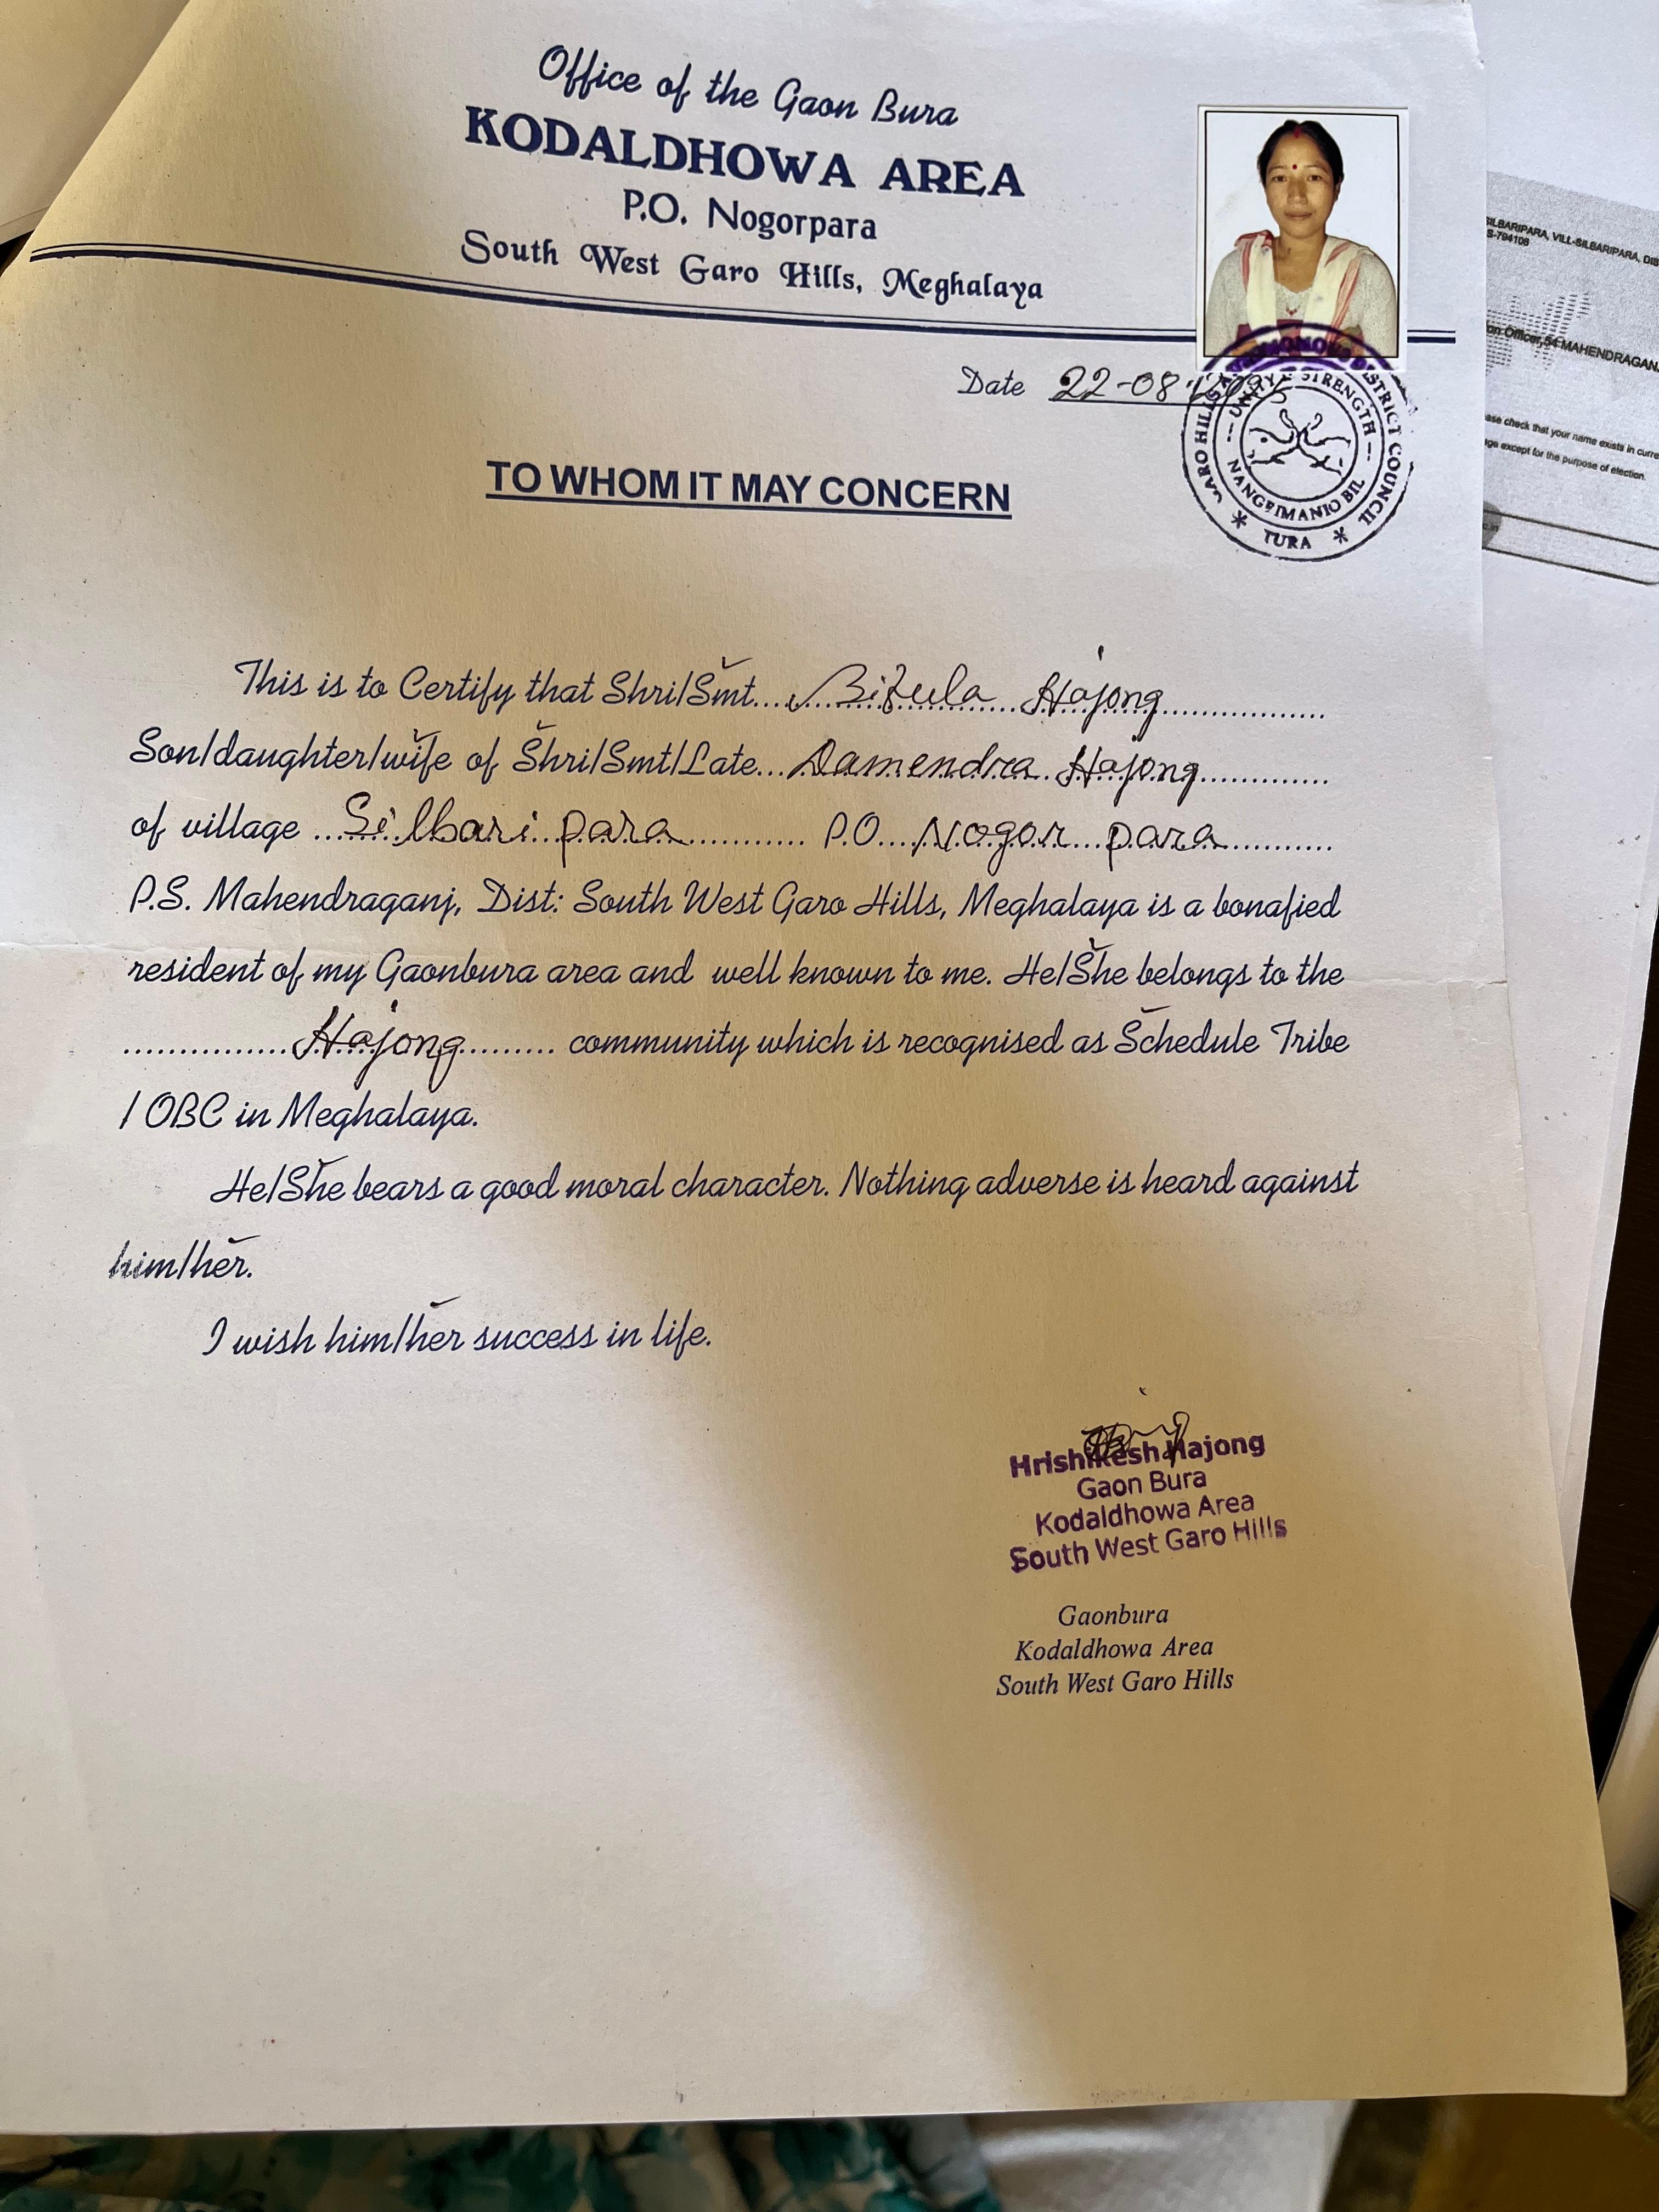 Office of the Gaon Bura
KODALDHOWA AREA
P.O. Nogorpara
South West Garo Hills, Meghalaya
Date 22-08-2025
GARO HILLS AUTONOMOUS DISTRICT COUNCIL
UNITY & STRENGTH
NANGRIMANIO BIL
* TURA *
TO WHOM IT MAY CONCERN
This is to Certify that Shri/Smt.... Hajong
Son/daughter/wife of Shri/Smt/Late... Damendra Hajong
of village ...Silbari para............ P.O....Nogor para
P.S. Mahendraganj, Dist: South West Garo Hills, Meghalaya is a bonafied
resident of my Gaonbura area and well known to me. He/She belongs to the
...............Hajong......... community which is recognised as Schedule Tribe
/ OBC in Meghalaya.
He/She bears a good moral character. Nothing adverse is heard against
him/her.
I wish him/her success in life.
Hrishikesh Hajong
Gaon Bura
Kodaldhowa Area
South West Garo Hills
Gaonbura
Kodaldhowa Area
South West Garo Hills
SILBARIPARA, VILL-SILBARIPARA, DIS
S-794108
on Officer,54 MAHENDRAGAN
ase check that your name exists in curre
ge except for the purpose of election.